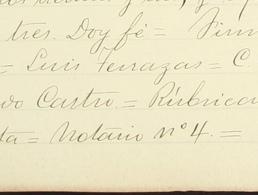 tres. Doy fé = Firm
= Luis Terrazas = C.
do Castro. = Rúbricas
ta = Notario nº 4. =